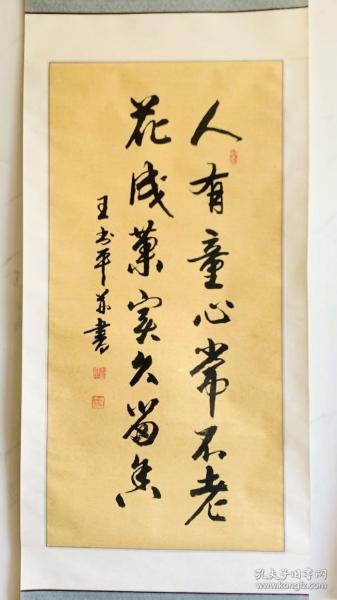 人有童心常不老
花成菓实久留香
王书平并书
孔夫子旧书网
www.kongfz.com